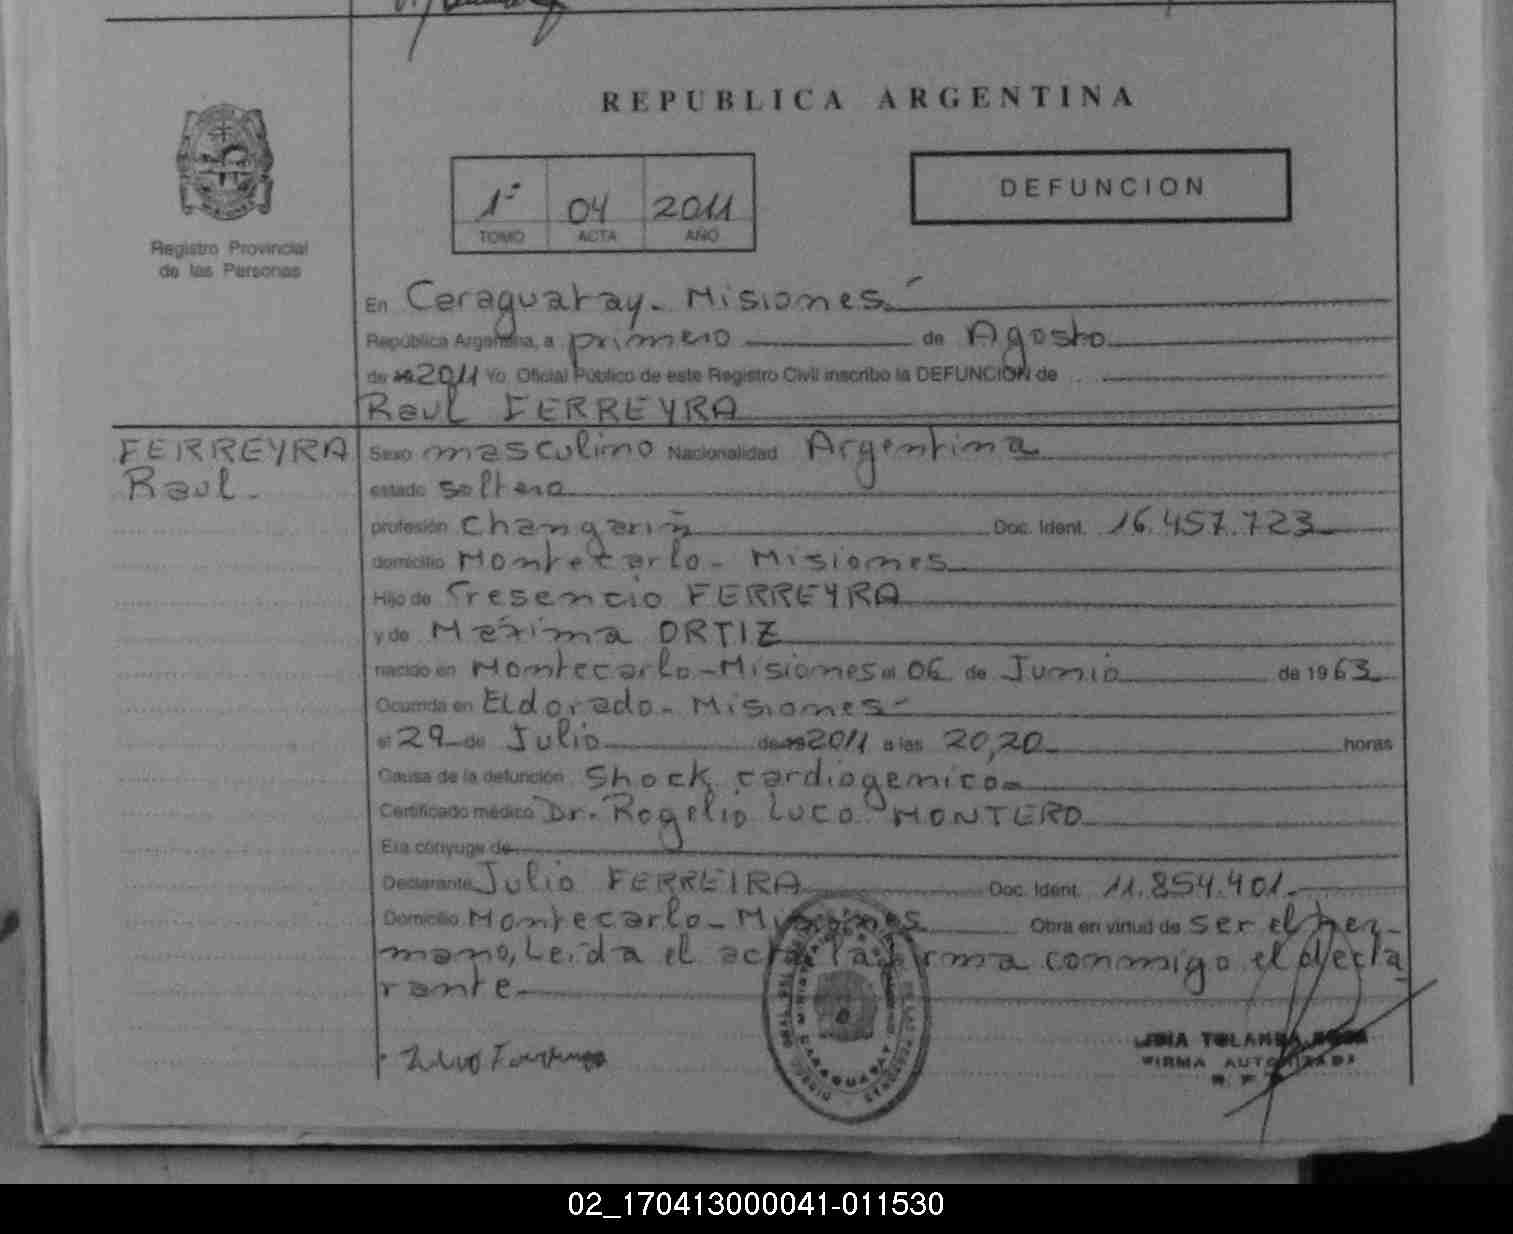 REPUBLICA ARGENTINA
1º 04 2011
TOMO ACTA AÑO
DEFUNCION
Registro Provincial
de las Personas
En Caraguatay - Misiones
República Argentina, a primero de Agosto
de 19 2011 Yo, Oficial Público de este Registro Civil inscribo la DEFUNCION de
Raul FERREYRA
FERREYRA
Raul.
Sexo masculino Nacionalidad Argentina
estado soltero
profesión changarin Doc. Ident. 16.457.723
domicilio Montecarlo - Misiones
Hijo de Cresencio FERREYRA
y de Maxima ORTIZ
nacido en Montecarlo - Misiones el 06 de Junio de 1963
Ocurrida en Eldorado - Misiones
el 29 de Julio de 19 2011 a las 20,20 horas
Causa de la defunción Shock cardiogenico
Certificado médico Dr. Rogelio Luco MONTERO
Era cónyuge de
Declarante Julio FERREIRA Doc. Ident. 11.854.401.
Domicilio Montecarlo - Misiones Obra en virtud de ser el her-
mano, Leida el acta la firma conmigo el decla
rante
CARAGUATAY
FIRMA AUTORIZADA
02_170413000041-011530